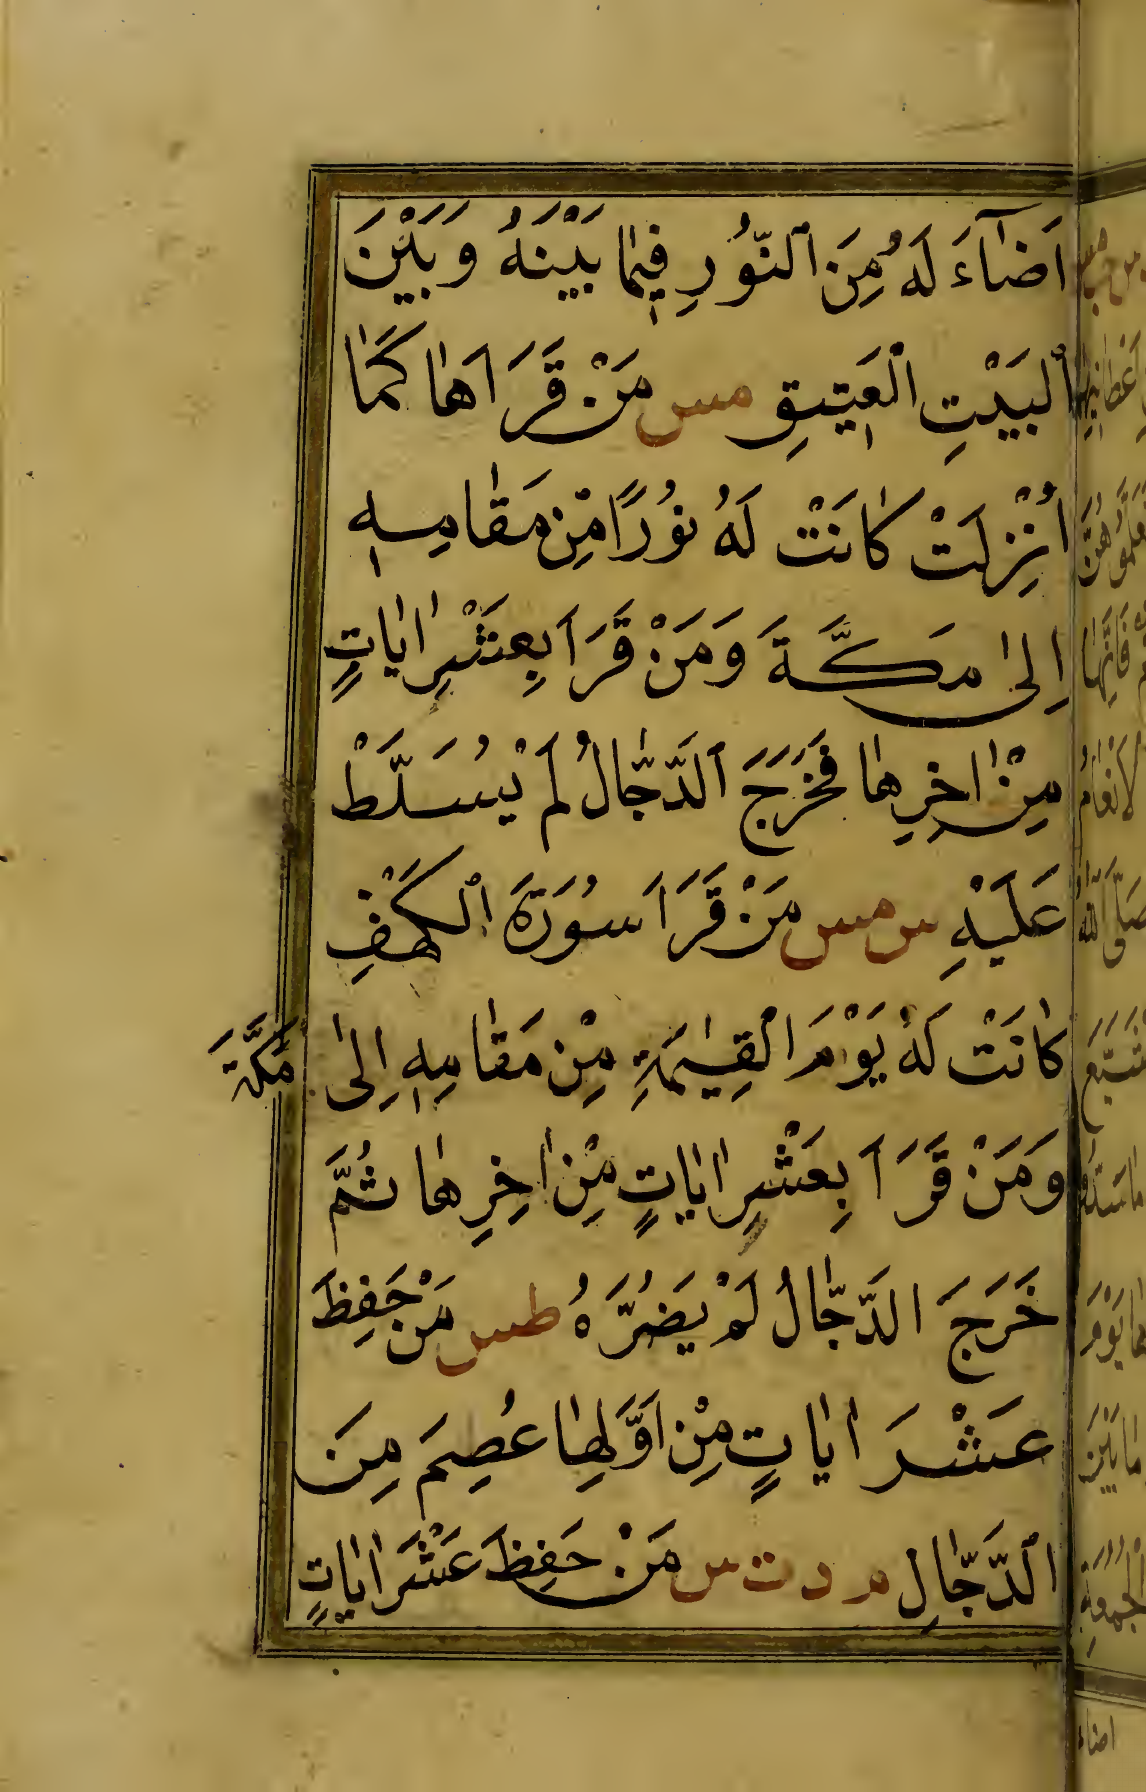 اَضَٓاءَ لَهُ مِنَ النُّورِ فِيمَا بَيْنَهُ وَبَيْنَ
الْبَيْتِ الْعَتِيقِ مس مَنْ قَرَاَهَا كَمَا
اُنْزِلَتْ كَانَتْ لَهُ نُورًا مِنْ مَقَامِهِ
اِلٰى مَكَّةَ وَمَنْ قَرَاَ بِعَشْرِ اٰيَاتٍ
مِنْ اٰخِرِهَا فَخَرَجَ الدَّجَّالُ لَمْ يُسَلَّطْ
عَلَيْهِ س مس مَنْ قَرَاَ سُورَةَ الْكَهْفِ
كَانَتْ لَهُ يَوْمَ الْقِيٰمَةِ مِنْ مَقَامِهِ اِلٰى مَكَّةَ
وَمَنْ قَرَاَ بِعَشْرِ اٰيَاتٍ مِنْ اٰخِرِهَا ثُمَّ
خَرَجَ الدَّجَّالُ لَمْ يَضُرَّهُ طس مَنْ حَفِظَ
عَشْرَ اٰيَاتٍ مِنْ اَوَّلِهَا عُصِمَ مِنَ
الدَّجَّالِ م د ت س مَنْ حَفِظَ عَشْرَ اٰيَاتٍ